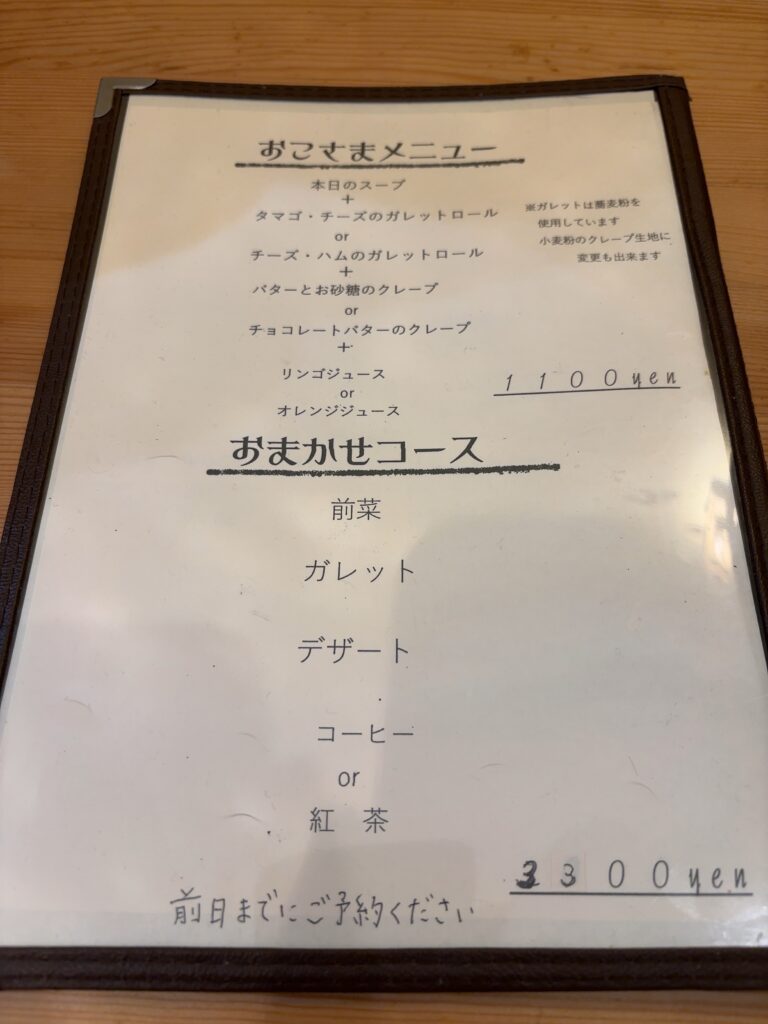 おこさまメニュー
本日のスープ
+
タマゴ・チーズのガレットロール
or
チーズ・ハムのガレットロール
+
バターとお砂糖のクレープ
or
チョコレートバターのクレープ
+
リンゴジュース
or
オレンジジュース
※ガレットは蕎麦粉を
使用しています
小麦粉のクレープ生地に
変更も出来ます
1100yen
おまかせコース
前菜
ガレット
デザート
コーヒー
or
紅 茶
3300yen
前日までにご予約ください